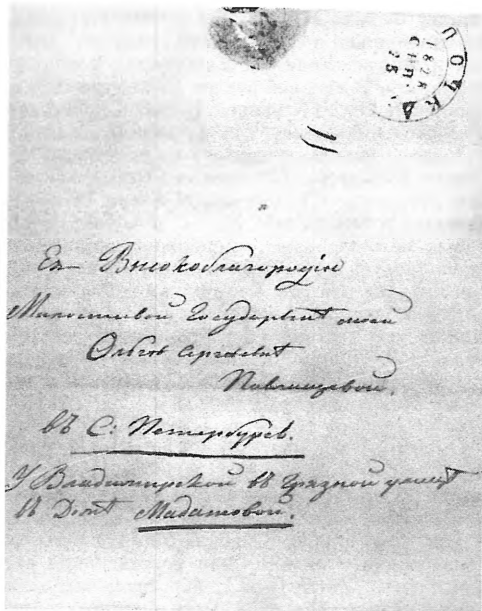 1828
СЕН.
25
Ея Высокоблагородію
Милостивой Государынѣ моей
Ольгѣ Сергѣевнѣ
Павлищевой.
въ С: Петербургѣ.
У Владимирской въ Грязной улицѣ
въ Домѣ Мадатовой.